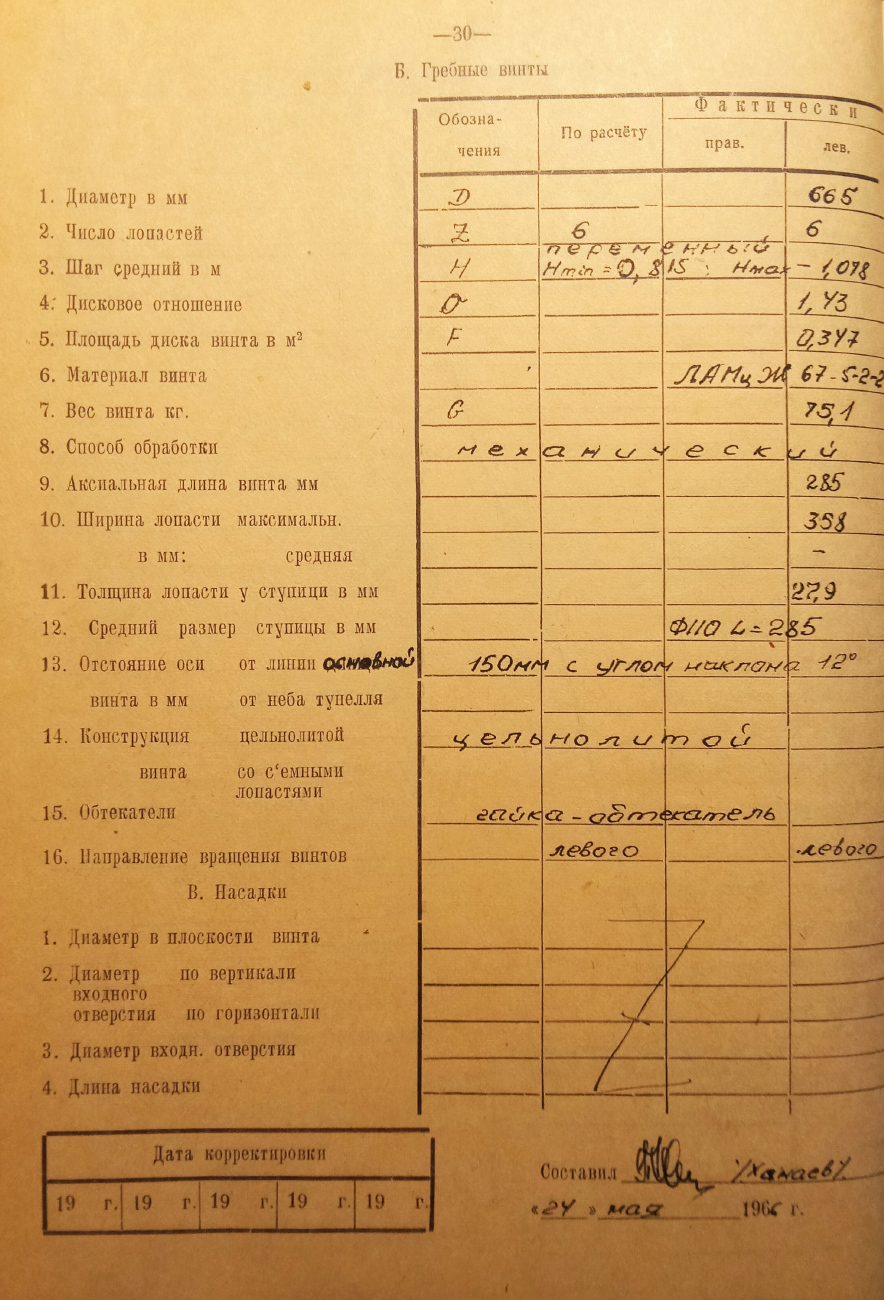 —30—
Б. Гребные винты
Обозна-
чения
По расчёту
Фактически
прав.
лев.
1. Диаметр в мм D 665
2. Число лопастей Z 6 6
переменный
3. Шаг средний в м H Hmin = 0,815 ; Hмах – 1,078
4. Дисковое отношение 1,43
5. Площадь диска винта в м² F 0,347
6. Материал винта ЛАМцЖ 67-5-2-2
7. Вес винта кг. G 75,1
8. Способ обработки механический
9. Аксиальная длина винта мм 285
10. Ширина лопасти максимальн. 358
в мм: средняя –
11. Толщина лопасти у ступици в мм 27,9
12. Средний размер ступицы в мм Ф110 L = 285
13. Отстояние оси от линии основной 150мм с углом наклона 12°
винта в мм от неба тупелля
14. Конструкция цельнолитой цельнолитой
винта со с‘емными
лопастями
15. Обтекатели гайка – обтекатель
16. Направление вращения винтов левого левого
В. Насадки
1. Диаметр в плоскости винта
2. Диаметр по вертикали
входного
отверстия по горизонтали
3. Диаметр входн. отверстия
4. Длина насадки
Дата корректировки
19 г. 19 г. 19 г. 19 г. 19 г.
Составил /Ханаев/
«24» мая 1966 г.